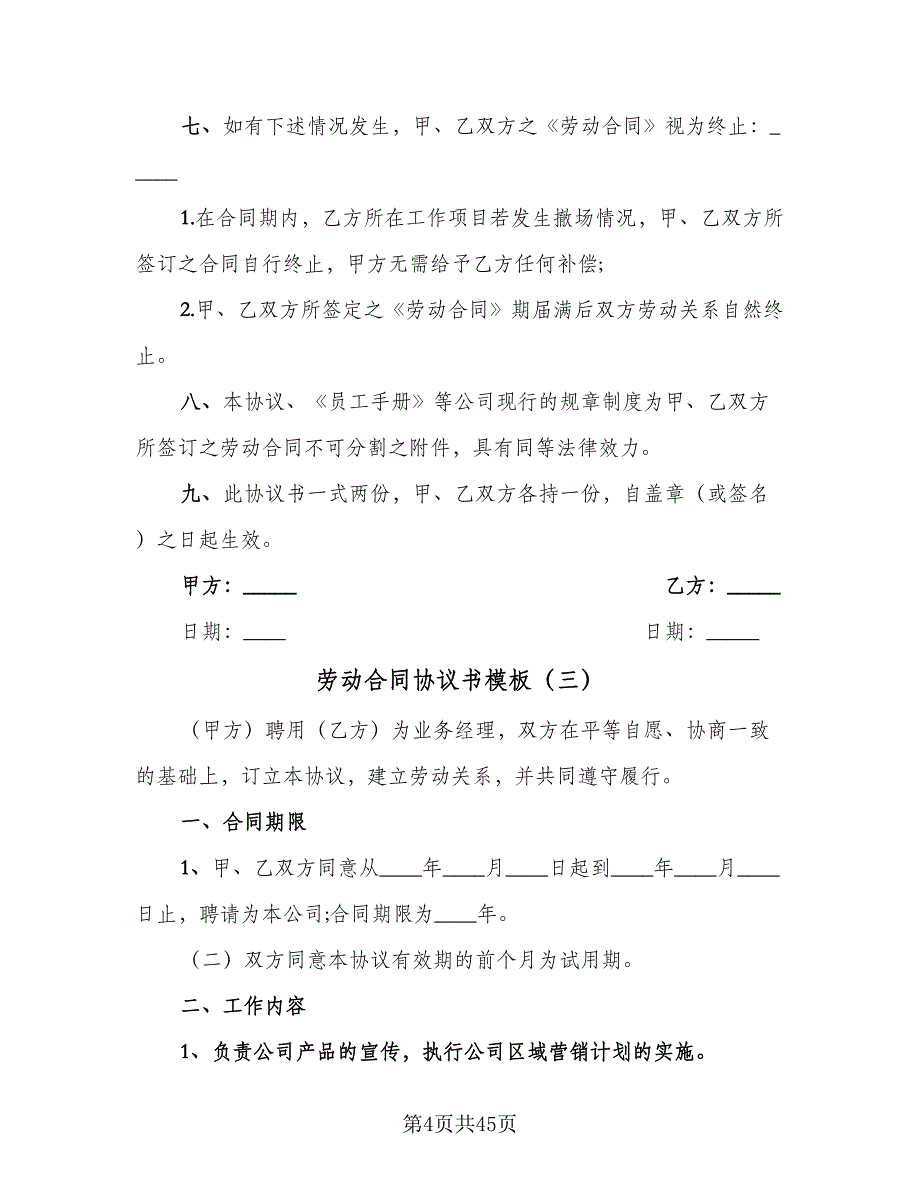 七、如有下述情况发生，甲、乙双方之《劳动合同》视为终止：_
____
1.在合同期内，乙方所在工作项目若发生撤场情况，甲、乙双方所
签订之合同自行终止，甲方无需给予乙方任何补偿;
2.甲、乙双方所签定之《劳动合同》期届满后双方劳动关系自然终
止。
八、本协议、《员工手册》等公司现行的规章制度为甲、乙双方
所签订之劳动合同不可分割之附件，具有同等法律效力。
九、此协议书一式两份，甲、乙双方各持一份，自盖章（或签名
）之日起生效。
甲方：_____ 乙方：_____
日期：____ 日期：_____
劳动合同协议书模板（三）
（甲方）聘用（乙方）为业务经理，双方在平等自愿、协商一致
的基础上，订立本协议，建立劳动关系，并共同遵守履行。
一、合同期限
1、甲、乙双方同意从____年____月____日起到____年____月____
日止，聘请为本公司;合同期限为____年。
（二）双方同意本协议有效期的前个月为试用期。
二、工作内容
1、负责公司产品的宣传，执行公司区域营销计划的实施。
第4页共45页